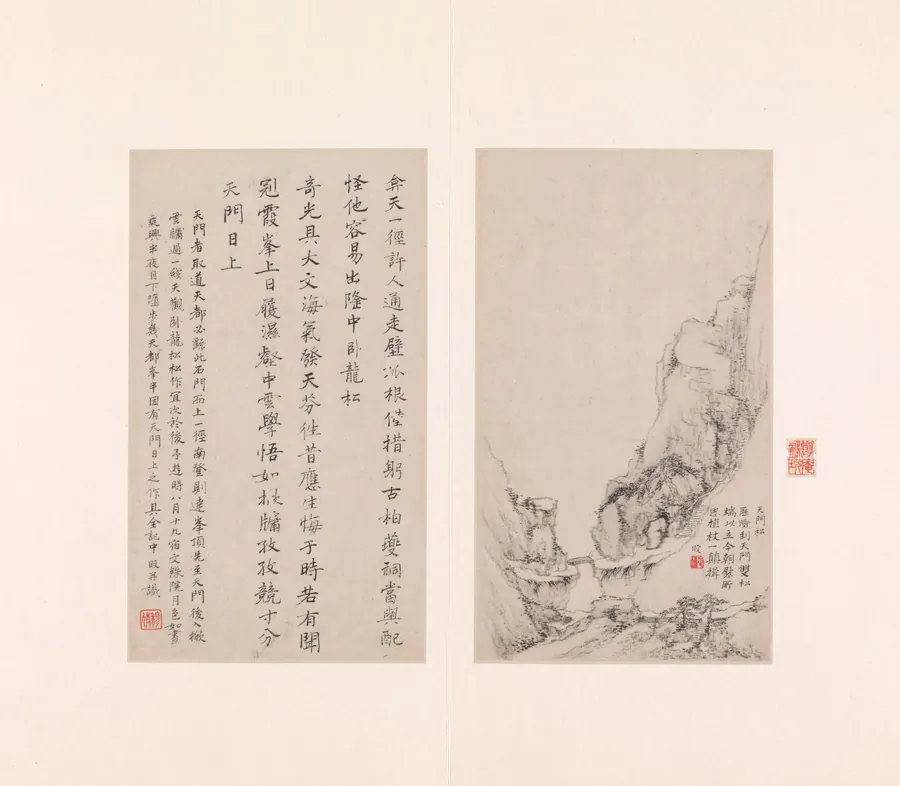 天門松
歷險到天門雙松
端以立今朝發所
思植杖一顛揖
旼
弇天一徑許人通走壁派根倐措躬古柏夔祠當與配
怪他容易出隆中 臥龍松
奇光具大文海氣發天芬往昔應生悔于時若有聞
剡霞峯上日履濕壑中雲學悟如披牖孜孜競寸分
天門日上
天門者取道天都必繇此石門而上一徑南登則達峯頂先至天門後入撇
雲牖過一綫天觀臥龍松松作宜次於後予遊時八月十九宿文殊院月色如晝
夜興半夜月下隨步幾天都峯半因有天門日上之作具全記中旼并識